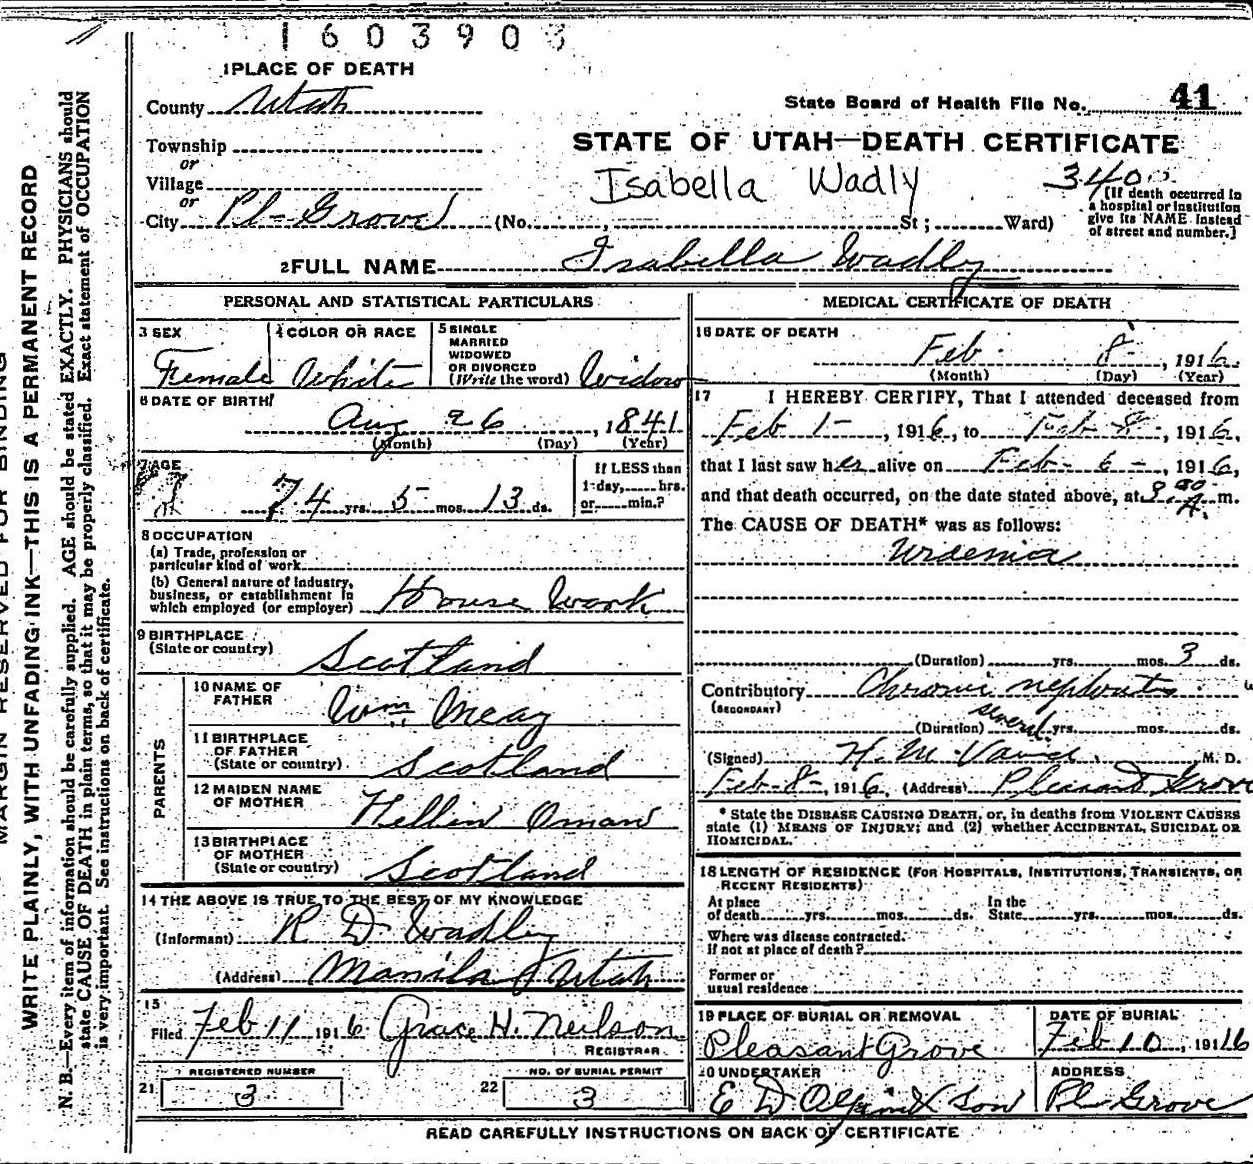 1603903
1 PLACE OF DEATH
County Utah
State Board of Health File No. 41
Township
STATE OF UTAH—DEATH CERTIFICATE
or
Village
Isabella Wadly
340
or
City Pl- Grove (No. , St; Ward)
(If death occurred in
a hospital or institution
give its NAME instead
of street and number.)
2 FULL NAME Isabella Wadly
PERSONAL AND STATISTICAL PARTICULARS
3 SEX
Female
4 COLOR OR RACE
White
5 SINGLE
MARRIED
WIDOWED
OR DIVORCED
(Write the word) Widow
6 DATE OF BIRTH
Aug 26, 1841
(Month) (Day) (Year)
7 AGE
74 yrs. 5 mos. 13 ds.
If LESS than
1-day, hrs.
or min.?
8 OCCUPATION
(a) Trade, profession or
particular kind of work
(b) General nature of industry,
business, or establishment in
which employed (or employer) House Work
9 BIRTHPLACE
(State or country) Scotland
PARENTS
10 NAME OF
FATHER Wm Meay
11 BIRTHPLACE
OF FATHER
(State or country) Scotland
12 MAIDEN NAME
OF MOTHER Hellin Oman
13 BIRTHPLACE
OF MOTHER
(State or country) Scotland
14 THE ABOVE IS TRUE TO THE BEST OF MY KNOWLEDGE
(Informant) R D Wadley
(Address) Manila Utah
15
Filed Feb 11 1916 Grace H. Neilson
REGISTRAR
REGISTERED NUMBER
21 3
NO. OF BURIAL PERMIT
22 3
MEDICAL CERTIFICATE OF DEATH
16 DATE OF DEATH
Feb. 8, 1916
(Month) (Day) (Year)
17 I HEREBY CERTIFY, That I attended deceased from
Feb 1-, 1916, to Feb-8-, 1916,
that I last saw her alive on Feb-6-, 1916,
and that death occurred, on the date stated above, at A. m.
The CAUSE OF DEATH* was as follows:
Uraemia
(Duration) yrs. mos. 3 ds.
Contributory Chronic nephritis
(SECONDARY)
(Duration) several yrs. mos. ds.
(Signed) H. M. M. D.
Feb-8-, 1916, (Address) Pleasant Grove
* State the DISEASE CAUSING DEATH, or, in deaths from VIOLENT CAUSES
state (1) MEANS OF INJURY; and (2) whether ACCIDENTAL, SUICIDAL OR
HOMICIDAL.
18 LENGTH OF RESIDENCE (FOR HOSPITALS, INSTITUTIONS, TRANSIENTS, OR
RECENT RESIDENTS)
At place
of death yrs. mos. ds.
In the
State yrs. mos. ds.
Where was disease contracted.
If not at place of death?
Former or
usual residence
19 PLACE OF BURIAL OR REMOVAL
Pleasant Grove
DATE OF BURIAL
Feb 10, 191 16
20 UNDERTAKER
E D Olpin & Son
ADDRESS
Pl- Grove
READ CAREFULLY INSTRUCTIONS ON BACK OF CERTIFICATE
MARGIN RESERVED FOR BINDING
WRITE PLAINLY, WITH UNFADING INK—THIS IS A PERMANENT RECORD
N. B.—Every item of information should be carefully supplied. AGE should be stated EXACTLY. PHYSICIANS should
state CAUSE OF DEATH in plain terms, so that it may be properly classified. Exact statement of OCCUPATION
is very important. See instructions on back of certificate.